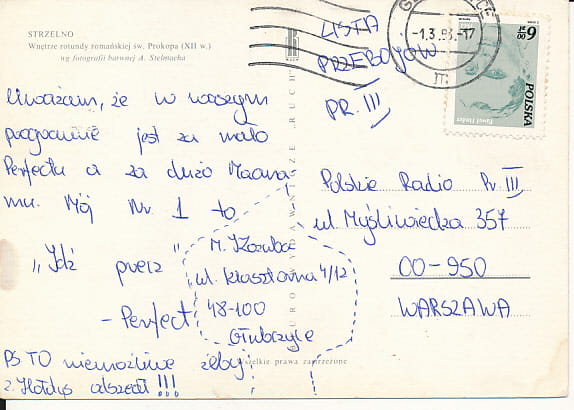 STRZELNO
Wnętrze rotundy romańskiej św. Prokopa (XII w.)
wg fotografii barwnej A. Stelmacha
Uważam, że w waszym
programie jest za mało
Perfectu a za dużo Maana
mu. Mój Nr 1 to
„Idź precz"
- Perfect
PS TO niemożliwe żeby
z. Hołdys odszedł!!!
LISTA
PRZEBOJÓW
PR. III
-1.3.83.-17
6 zł
POLSKA
Polskie Radio Pr III
ul Myśliwiecka 357
00-950
WARSZAWA
ul. Klasztorna 4/12
48-100
Głubczyce
Wszelkie prawa zastrzeżone
RUCH